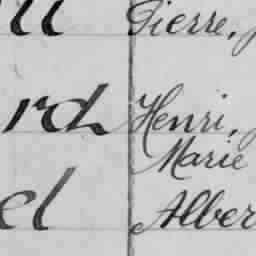 Pierre,
rd Henri,
Marie
el Alber